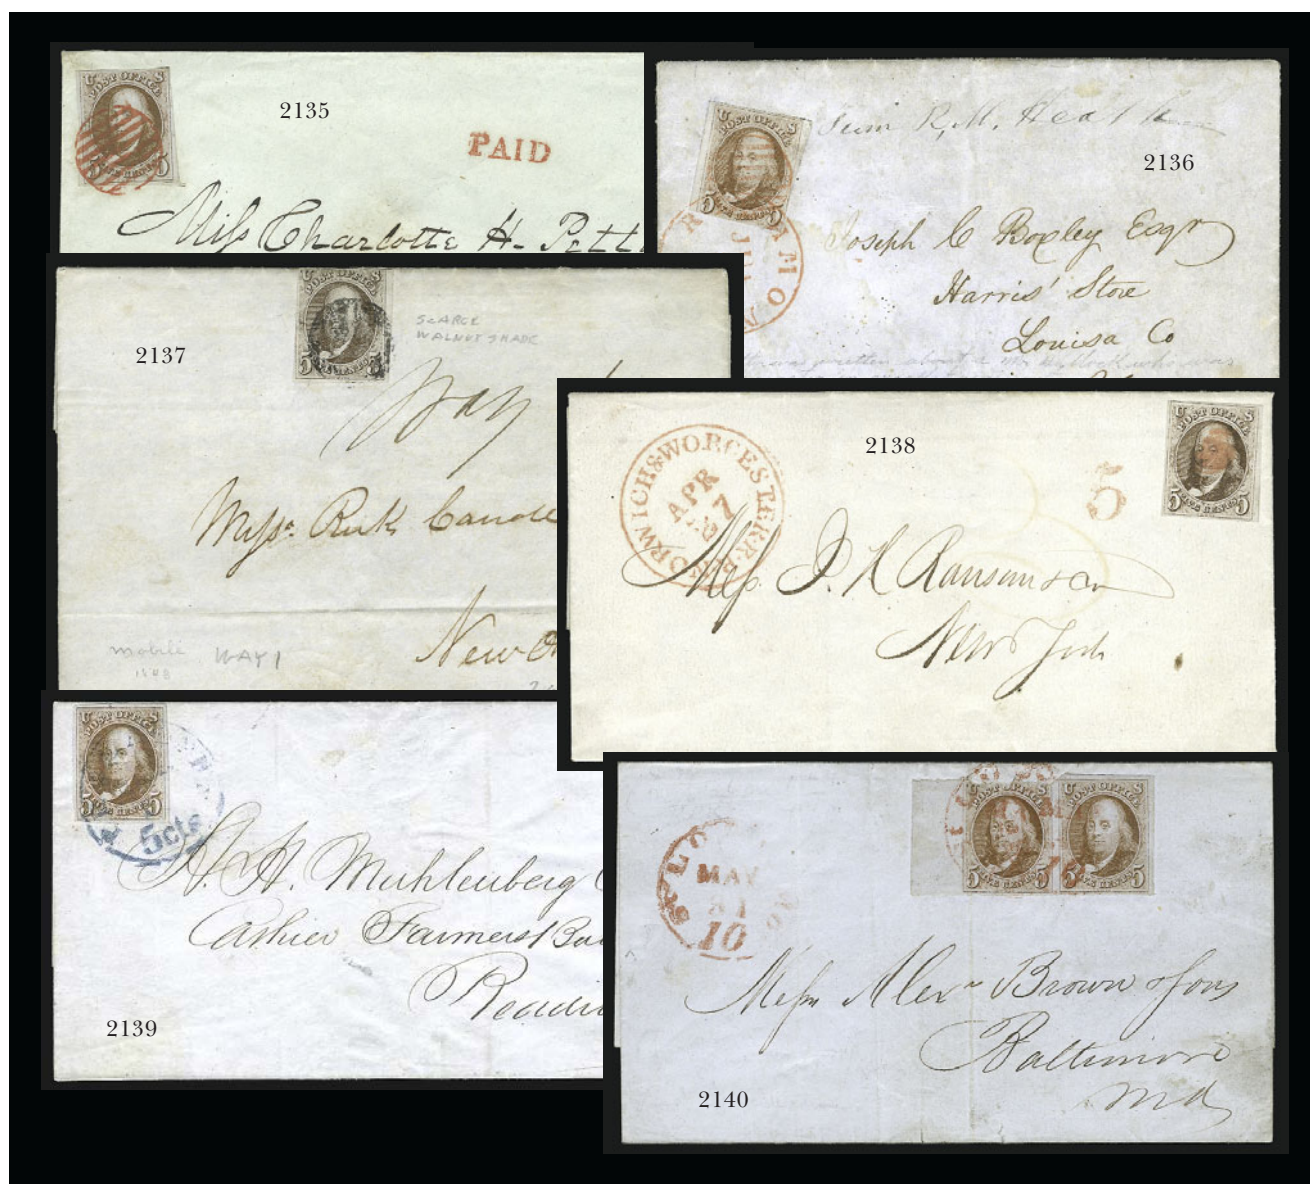 U S
POST OFFICE
5 FIVE CENTS 5
2135
PAID
Miss Charlotte H. Pett
U S
POST OFFICE
5 FIVE CENTS 5
from R. M. Heath
2136
Joseph C Boxley Esqr
Harris' Store
Louisa Co
POST OFFICE
5 FIVE CENTS 5
SCARCE
WALNUT SHADE
2137
Way
Messrs. Kirk
New O
Mobile WAY 1
1848
NORWICH & WORCESTER R.R.
APR
27
2138
5
U S
POST OFFICE
5 FIVE CENTS 5
Mess J. H Ransom & Co
New York
U S
POST OFFICE
5 FIVE CENTS 5
5cts
H. H. Muhlenberg
Cashier Farmers Ba
Readin
2139
ST LO
MAY
10
U S
POST OFFICE
5 FIVE CENTS 5
POST OFFICE
5 FIVE CENTS 5
Messrs Alexr Brown & Sons
Baltimore
Md
2140